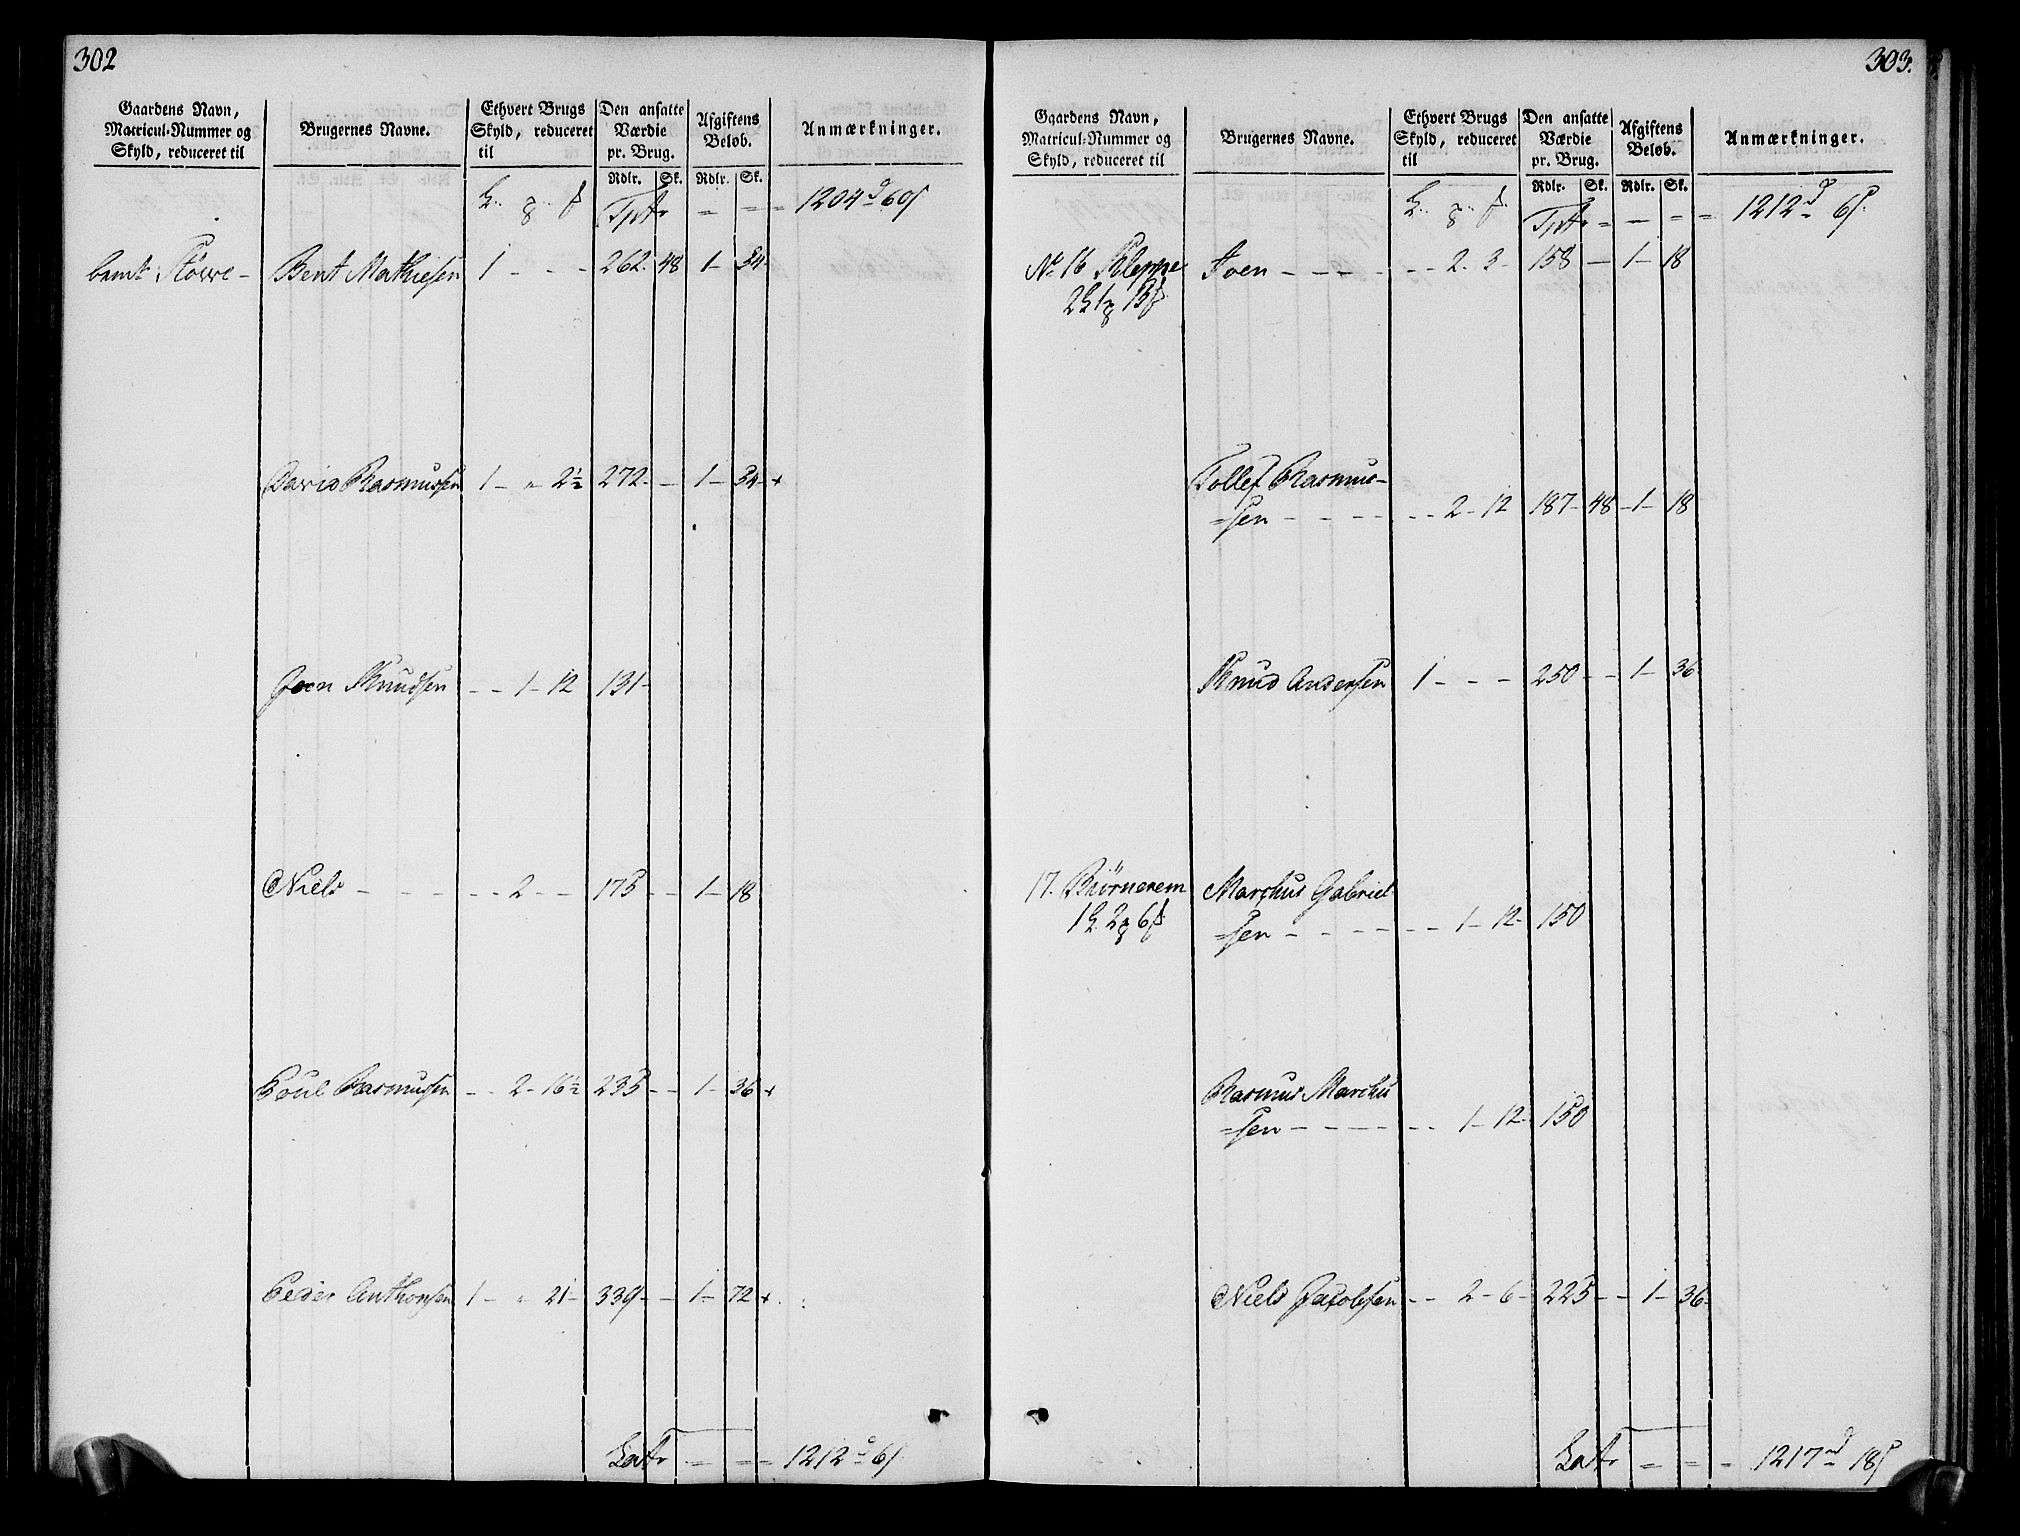 302
Gaardens Navn,
Matricul-Nummer og
Skyld, reduceret til
Brugernes Navne.
Ethvert Brugs
Skyld, reduceret
til
Den ansatte
Værdie
pr. Brug.
Afgiftens
Beløb.
Anmærkninger.
Rdlr. Sk. Rdlr. Sk.
Tprt 1204 d 60 s
bemte Støvre - Bent Mathiesen 1 - - - 262. 48 1 - 54
David Rasmussen 1 - " 2½ 272 - - 1 - 54 - +
Joen Knudsen - - 1 - 12 131 -
Niels - - - - - 2 - - 175 - - 1 - 18
Poul Rasmussen - - 2 - 16½ 235 - - 1 - 36 +
Peder Anthonsen 1 - " 21 - 339 - - 1 - 72 +
Latr 1212 d 6 s
303.
Gaardens Navn,
Matricul-Nummer og
Skyld, reduceret til
Brugernes Navne.
Ethvert Brugs
Skyld, reduceret
til
Den ansatte
Værdie
pr. Brug.
Afgiftens
Beløb.
Anmærkninger.
Rdlr. Sk. Rdlr. Sk.
Tprt 1212 d 6 s
No 16 Kleppe Iven - - - - - - 2 - 3 - 158 - 1 - 18
2 1 13
Tollef Rasmus-
=sen - - - - - - 2 - 12 187 - 48 - 1 - 18
Knud Andersen 1 - - - 250 - - 1 - 36
17. Biørnerem Marchus Gabriel
1 2 6 =sen - - - - - - 1 - 12 - 150
Rasmus Marchus
=sen - - - - - - 1 - 12 - 150
Niels Jacobsen - - 2 - 6 - 225 - - 1 - 36 -
Latr 1217 d 18 s